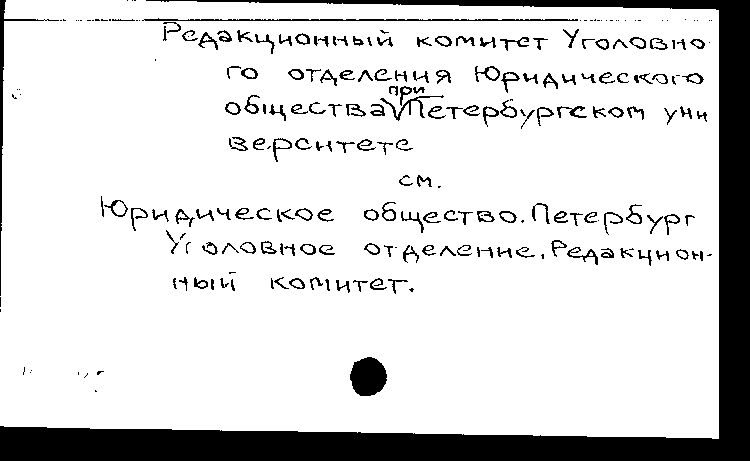 Редакционный комитет Уголовно
го отделения Юридического
общества при Петербургском уни
верситете
см.
Юридическое общество. Петербург
Уголовное отделение. Редакцион-
ный комитет.